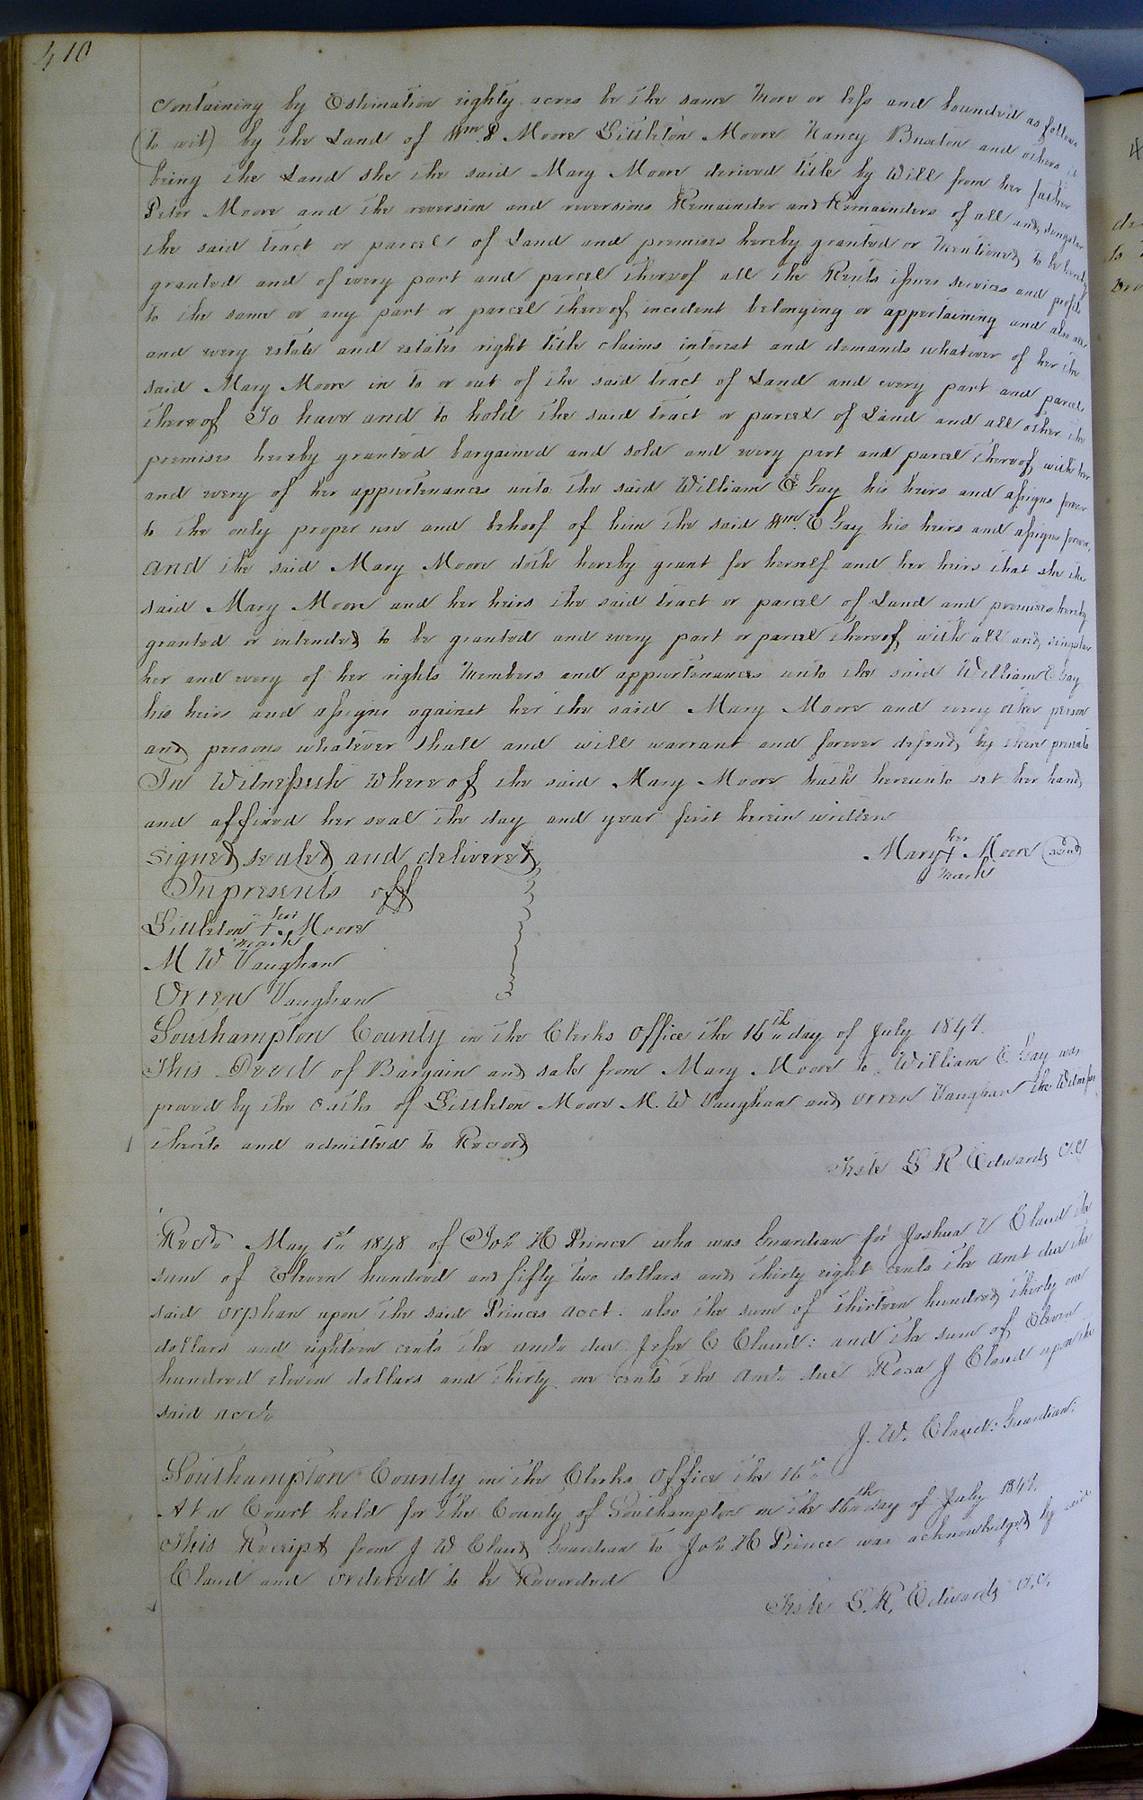 410
containing by Estimation eighty acres be the same more or less and bounded as follows
(to wit) by the Land of Wm P Moore Littleton Moore Nancy Buxton and others it
being the Land she the said Mary Moore derived title by Will from her father
Peter Moore and the reversion and reversions Remainder and Remainders of all and singular
the said tract or parcel of Land and premises hereby granted or mentioned to be hereby
granted and of every part and parcel thereof all the Rents issues services and profits
to the same or any part or parcel thereof incident belonging or appertaining and also all
and every estate and estates right title claims interest and demands whatever of her the
said Mary Moore in to or out of the said tract of Land and every part and parcel
thereof To have and to hold the said tract or parcel of Land and all other the
premises hereby granted bargained and sold and every part and parcel thereof with her
and every of her appurtenances unto the said William E Gay his heirs and assigns forever
to the only proper use and behoof of him the said Wm E Gay his heirs and assigns forever,
and the said Mary Moore doth hereby grant for herself and her heirs that she the
said Mary Moore and her heirs the said tract or parcel of Land and premises hereby
granted or intended to be granted and every part or parcel thereof with all and singular
her and every of her rights members and appurtenances unto the said William E Gay
his heirs and assigns against her the said Mary Moore and every other person
and persons whatever shall and will warrant and forever defend by these presents
In Witnesseth Whereof the said Mary Moore hath hereunto set her hand
and affixed her seal the day and year first herein written
signed sealed and delivered
Mary her + mark Moore (seal)
In presents off
Littleton his + mark Moore
M W Vaughan
Orren Vaughan
Southampton County in the Clerks Office the 16th day of July 1849.
This Deed of Bargain and sale from Mary Moore to William E Gay was
proved by the oaths of Littleton Moore M. W Vaughan and Orren Vaughan the Witnesses
thereto and admitted to Record
Teste L R Edwards C.C
Recd May 1st 1848 of Jos H Prince who was Guardian for Joshua V Claud the
sum of Eleven hundred and fifty two dollars and thirty eight cents the amt due the
said orphan upon the said Princes acct. also the sum of thirteen hundred thirty one
dollars and eighteen cents the amt due John C Claud: and the sum of Eleven
hundred eleven dollars and thirty one cents the amt due Rosa J Claud upon the
said acct
J. W. Claud: Guardian:
Southampton County in the Clerks Office the 16th
At a Court held for the County of Southampton on the 16th day of July 1849.
This Receipt from J W Claud Guardian to Jos H Prince was acknowledged by said
Claud and ordered to be Recorded
Teste L. R. Edwards C.C.